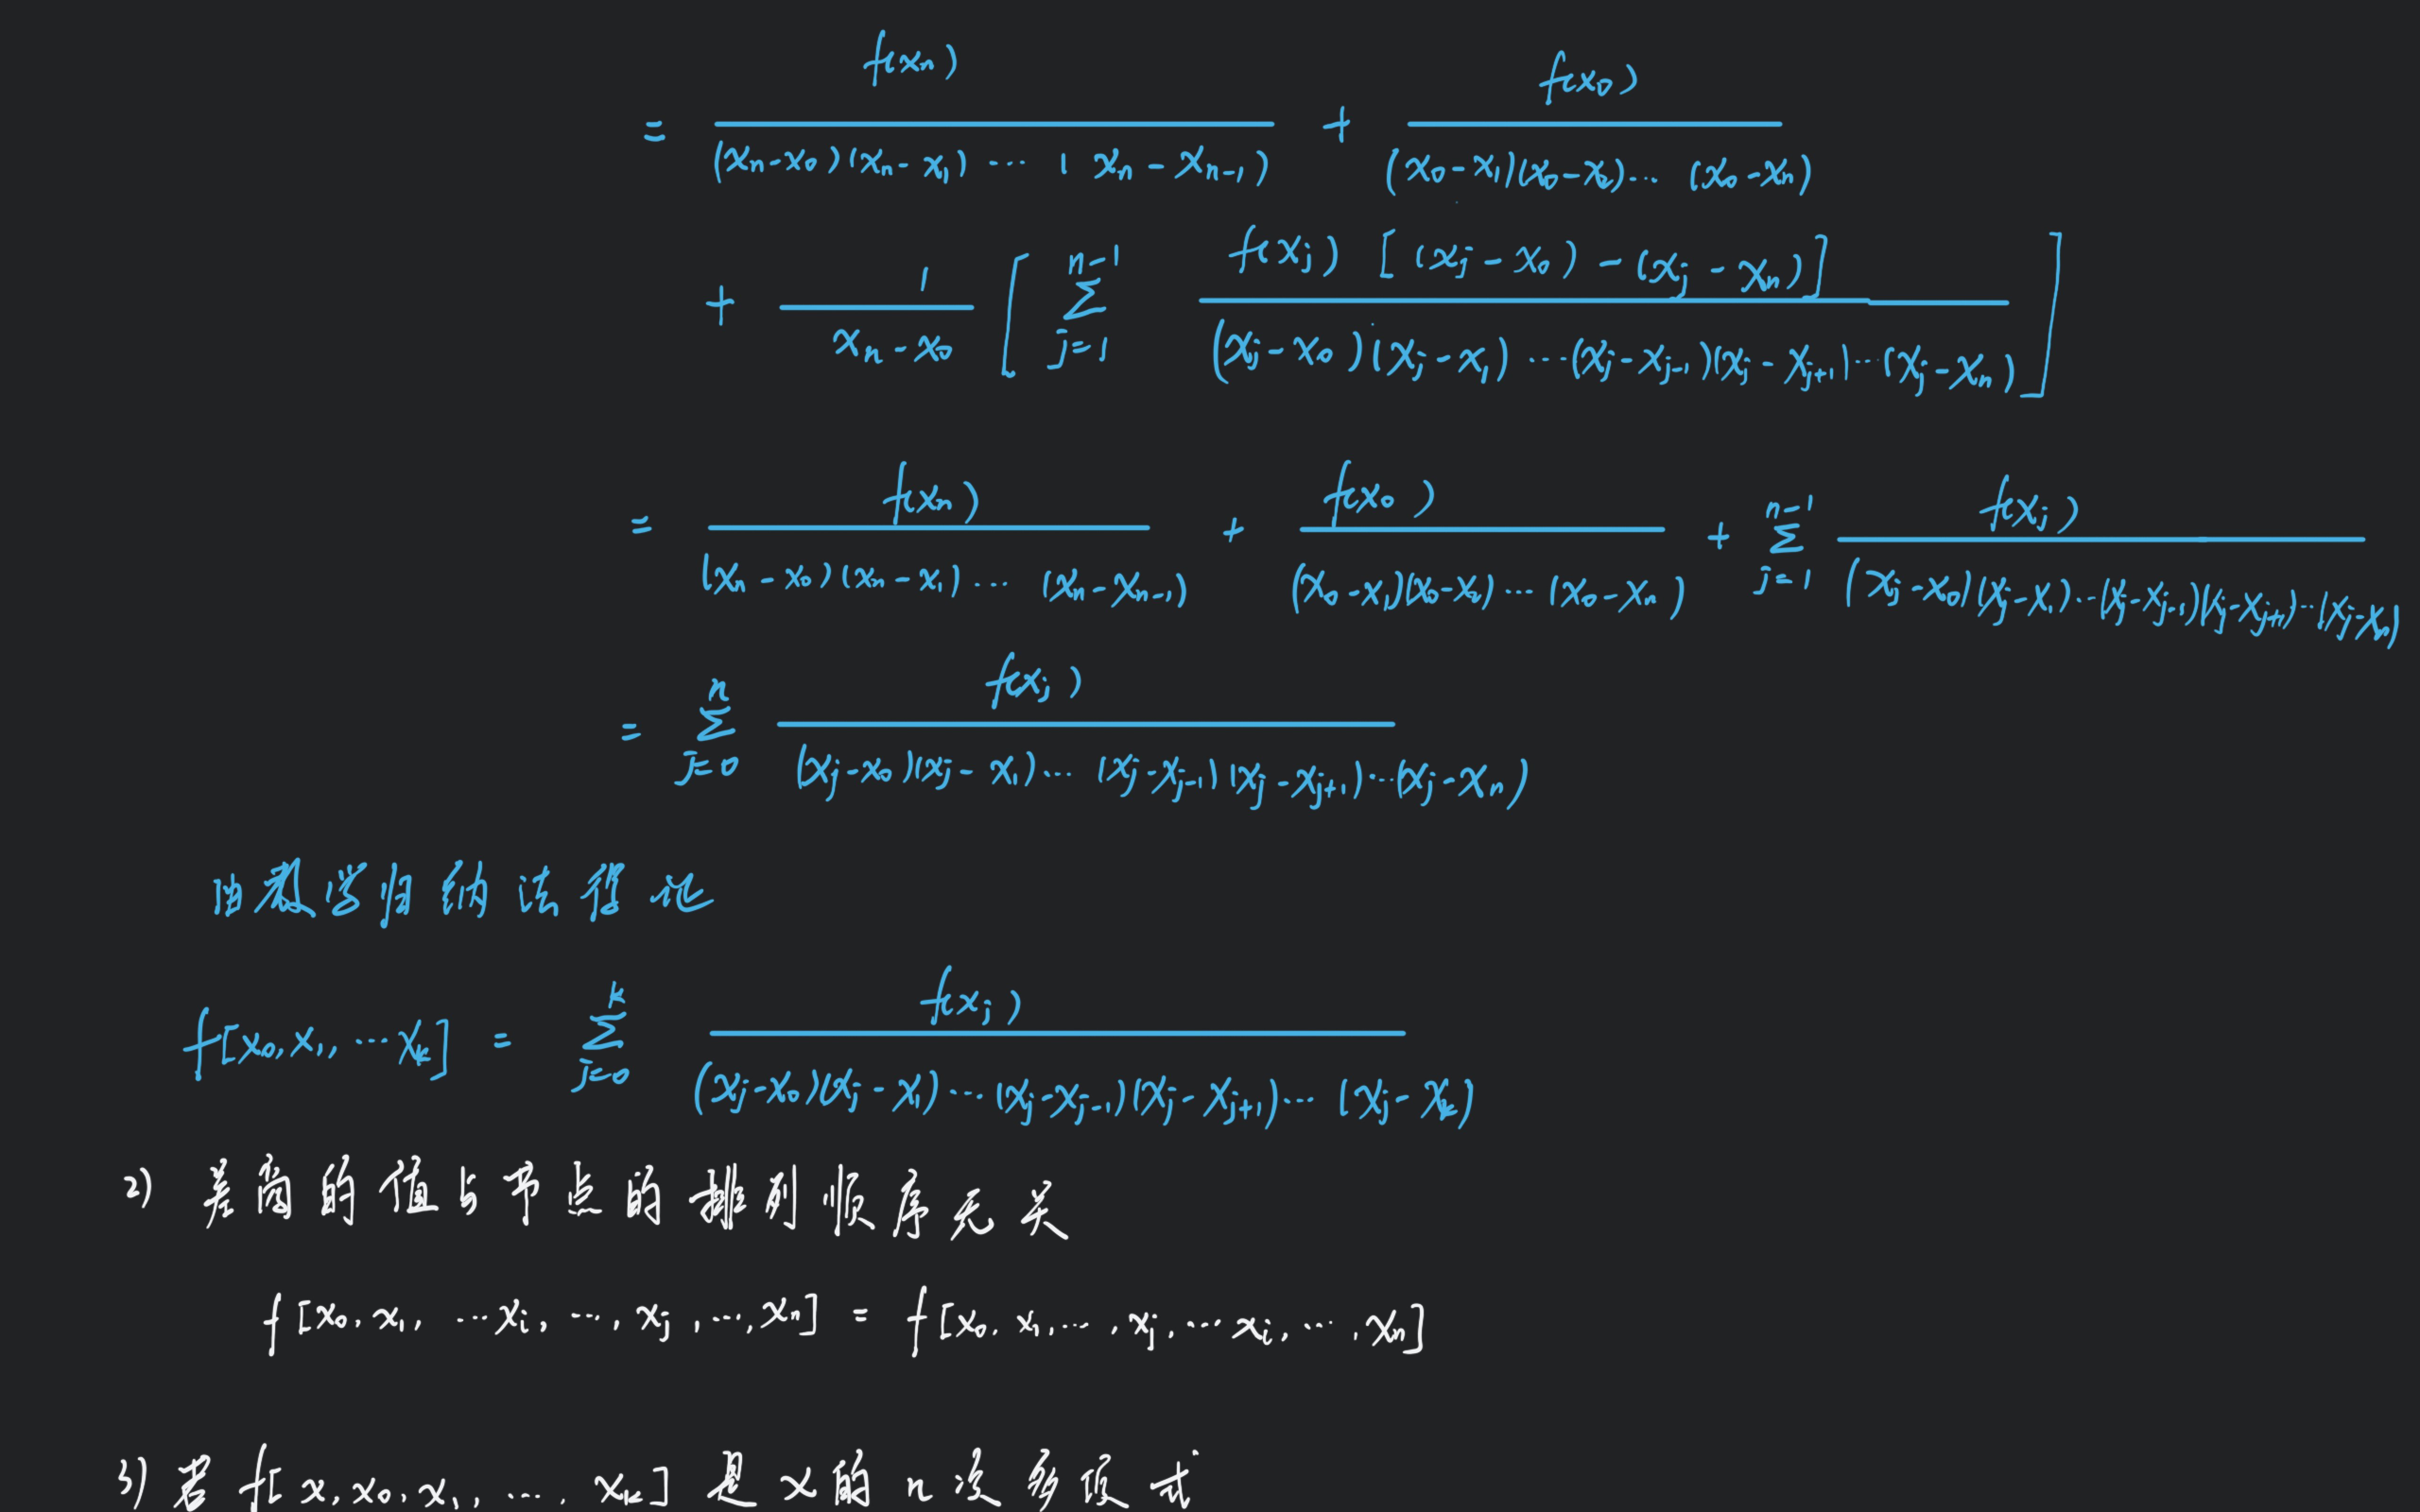 = \frac{f(x_n)}{(x_n-x_0)(x_n-x_1)\cdots(x_n-x_{n-1})} + \frac{f(x_0)}{(x_0-x_1)(x_0-x_2)\cdots(x_0-x_n)}
+ \frac{1}{x_n-x_0} [ \sum_{j=1}^{n-1} \frac{f(x_j)[(x_j-x_0)-(x_j-x_n)]}{(x_j-x_0)(x_j-x_1)\cdots(x_j-x_{j-1})(x_j-x_{j+1})\cdots(x_j-x_n)} ]
= \frac{f(x_n)}{(x_n-x_0)(x_n-x_1)\cdots(x_n-x_{n-1})} + \frac{f(x_0)}{(x_0-x_1)(x_0-x_2)\cdots(x_0-x_n)} + \sum_{j=1}^{n-1} \frac{f(x_j)}{(x_j-x_0)(x_j-x_1)\cdots(x_j-x_{j-1})(x_j-x_{j+1})\cdots(x_j-x_n)}
= \sum_{j=0}^{n} \frac{f(x_j)}{(x_j-x_0)(x_j-x_1)\cdots(x_j-x_{j-1})(x_j-x_{j+1})\cdots(x_j-x_n)}
由数学归纳法得证
f[x_0,x_1,\cdots x_k] = \sum_{j=0}^{k} \frac{f(x_j)}{(x_j-x_0)(x_j-x_1)\cdots(x_j-x_{j-1})(x_j-x_{j+1})\cdots(x_j-x_k)}
2) 差商的值与节点的排列顺序无关
f[x_0,x_1,\cdots x_i,\cdots,x_j,\cdots,x_n] = f[x_0,x_1,\cdots,x_j,\cdots x_i,\cdots,x_n]
3) 若 f[x,x_0,x_1,\cdots,x_k] 是 x 的 n 次多项式